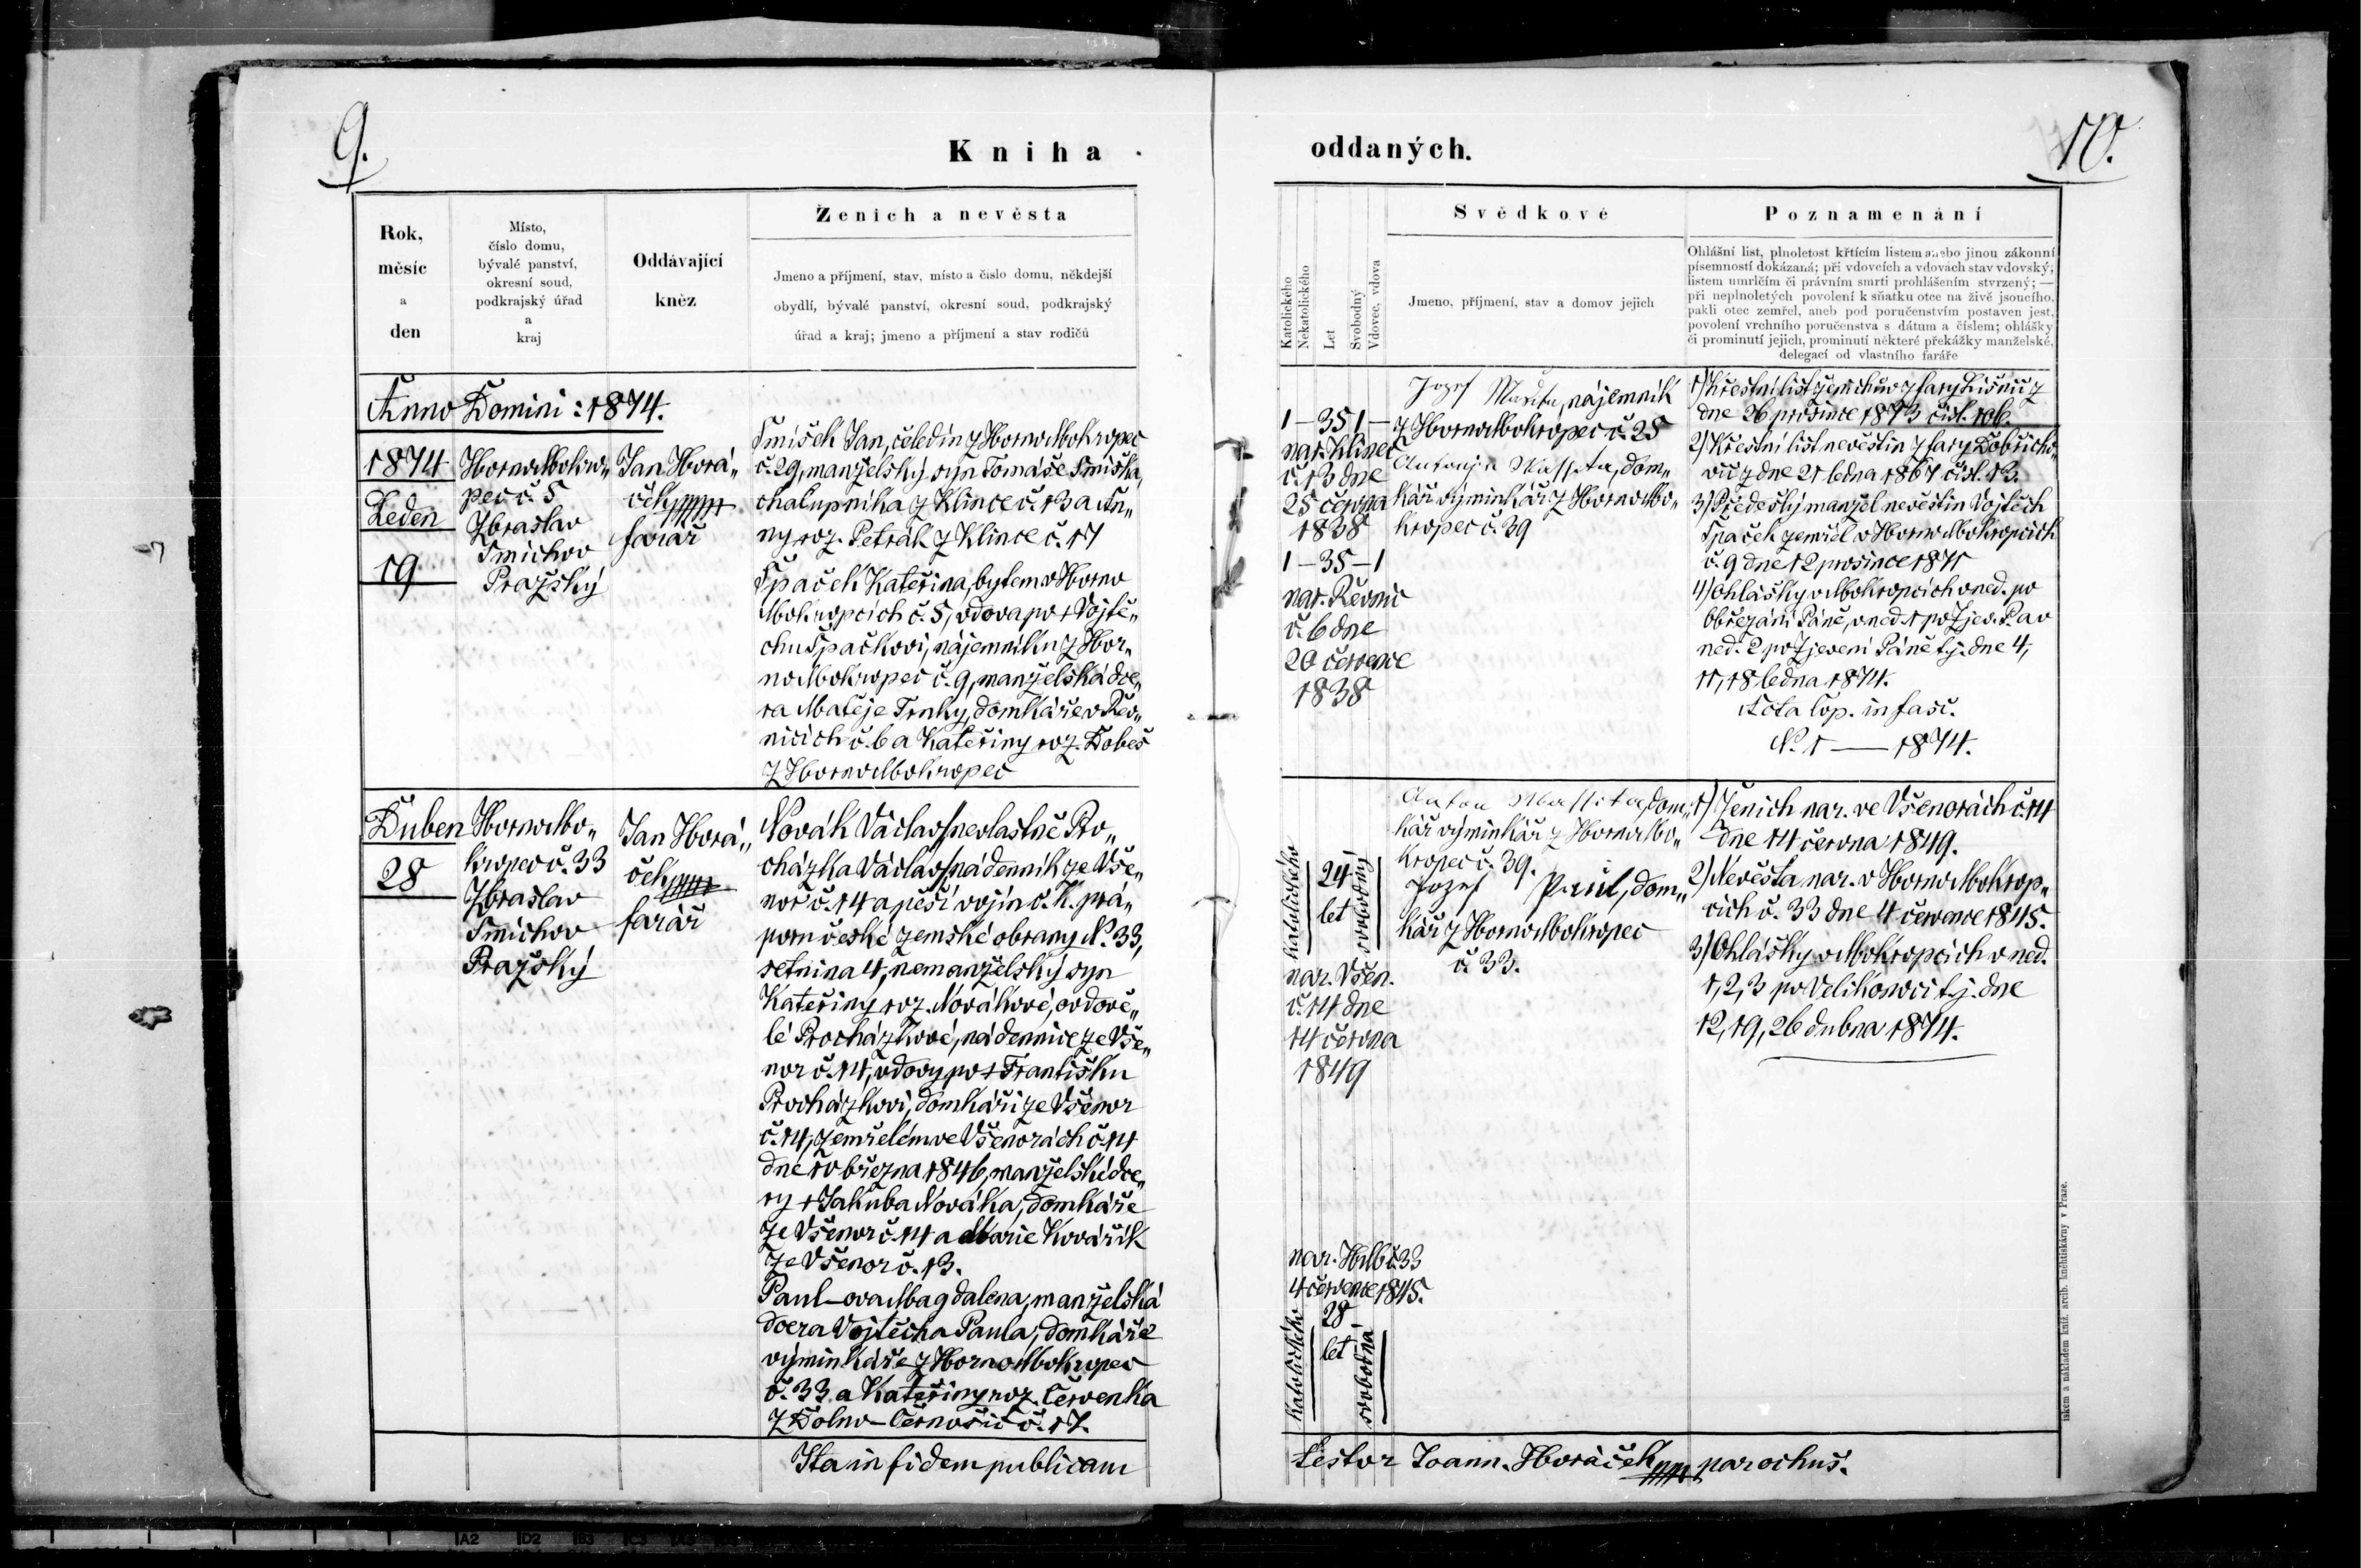 9.
Kniha
Rok,
měsíc
a
den
Místo,
číslo domu,
bývalé panství,
okresní soud,
podkrajský úřad
a
kraj
Oddávající
kněz
Ženich a nevěsta
Jmeno a příjmení, stav, místo a číslo domu, někdejší
obydlí, bývalé panství, okresní soud, podkrajský
úřad a kraj; jmeno a příjmení a stav rodičů
Anno Domini: 1874.
1874
Leden
19
Hornomokro„
pec č. 5
Zbraslav
Smíchov
Pražský
Jan Horá„
ček
farář
Smíšek Jan, čeledín z Hornomokropec
č. 29, manželský syn Tomáše Smíška,
chalupníka z Klince č. 13 a An„
ny roz. Petrák z Klince č. 17
Špaček Kateřina, bytem v Horno
Mokropcích č. 5, vdova po † Vojtě„
chu Špačkovi, nájemníku z Hor„
nomokropec č. 9, manželská dce„
ra Matěje Trnky, domkáře v Řev„
nicích č. 6 a Kateřiny roz. Dobeš
z Hornomokropec
Duben
28
Hornomo„
kropec č. 33
Zbraslav
Smíchov
Pražský
Jan Horá„
ček
farář
Novák Václav/nevlastně Pro„
cházka Václav/nádenník ze Vše„
nor č. 14 a pěší vojín c. k. prá„
poru české zemské obrany No. 33,
setnina 4, nemanželský syn
Kateřiny roz. Novákové, ovdově„
lé Procházkové, nádennice ze Vše„
nor č. 14, vdovy po † Františku
Procházkovi, domkáři ze Všenor
č. 14, zemřelém ve Všenorách č. 14
dne 10 března 1846, manželské dce„
ry † Jakuba Nováka, domkáře
ze Všenor č. 14 a Marie Kovářík
ze Všenor č. 13.
Paul-ova Magdalena, manželská
dcera Vojtěcha Paula, domkáře
výminkáře z Hornomokropec
č. 33 a Kateřiny roz. Červenka
z Dolno-Černošic č. 17.
Ita in fidem publicam
oddaných.
10.
Katolického
Nekatolického
Let
Svobodný
Vdovec, vdova
Svědkové
Jmeno, příjmení, stav a domov jejich
Poznamenání
Ohlášní list, plnoletost křtícím listem anebo jinou zákonní
písemností dokázaná; při vdovcích a vdovách stav vdovský;
listem umrlčím či právním smrti prohlášením stvrzený; —
při neplnoletých povolení k sňatku otce na živě jsoucího,
pakli otec zemřel, aneb pod poručenstvím postaven jest,
povolení vrchního poručenstva s dátum a číslem; ohlášky
či prominutí jejich, prominutí některé překážky manželské,
delegací od vlastního faráře
1 – 35 1 –
nar. Klinec
č. 13 dne
25 června
1838
1 – 35 – 1
nar. Řevnic
č. 6 dne
20 července
1838
Jozef nájemník
z Hornomokropec č. 25
dom„
kář výminkář z Hornomo„
kropec č. 39
1) Křestní list ženichův z fary Líšnic z
dne 26 prosince 1873 čísl. 106.
2) Křestní list nevěstin z fary Dobřicho„
vic z dne 21 ledna 1867 čísl. 13.
3) Předešlý manžel nevěstin Vojtěch
Špaček zemřel v Hornomokropcích
č. 9 dne 12 prosince 1871
4) Ohlášky v Mokropcích v ned. po
Obřezání Páně, v ned. 1 po Zjev. P. a v
ned. 2 po Zjevení Páně t. j. dne 4,
11, 18 ledna 1874.
Acta cop. in fasc.
No. 1 — 1874.
Katolického
24
let
svobodný
nar. Všen.
č. 14 dne
14 června
1849
nar. HMb č. 33
4 července 1845.
Katolického
28
let
svobodná
Anton dom„
kář výminkář z Hornomo„
kropec č. 39.
Jozef Paul, dom„
kář z Hornomokropec
č. 33.
1) Ženich nar. ve Všenorách č. 14
dne 14 června 1849.
2) Nevěsta nar. v Hornomokrop„
cích č. 33 dne 4 července 1845.
3) Ohlášky v Mokropcích v ned.
1, 2, 3 po Velikonoci t. j. dne
12, 19, 26 dubna 1874.
testor Joann. Horáček parochus.
A2
D2
B3